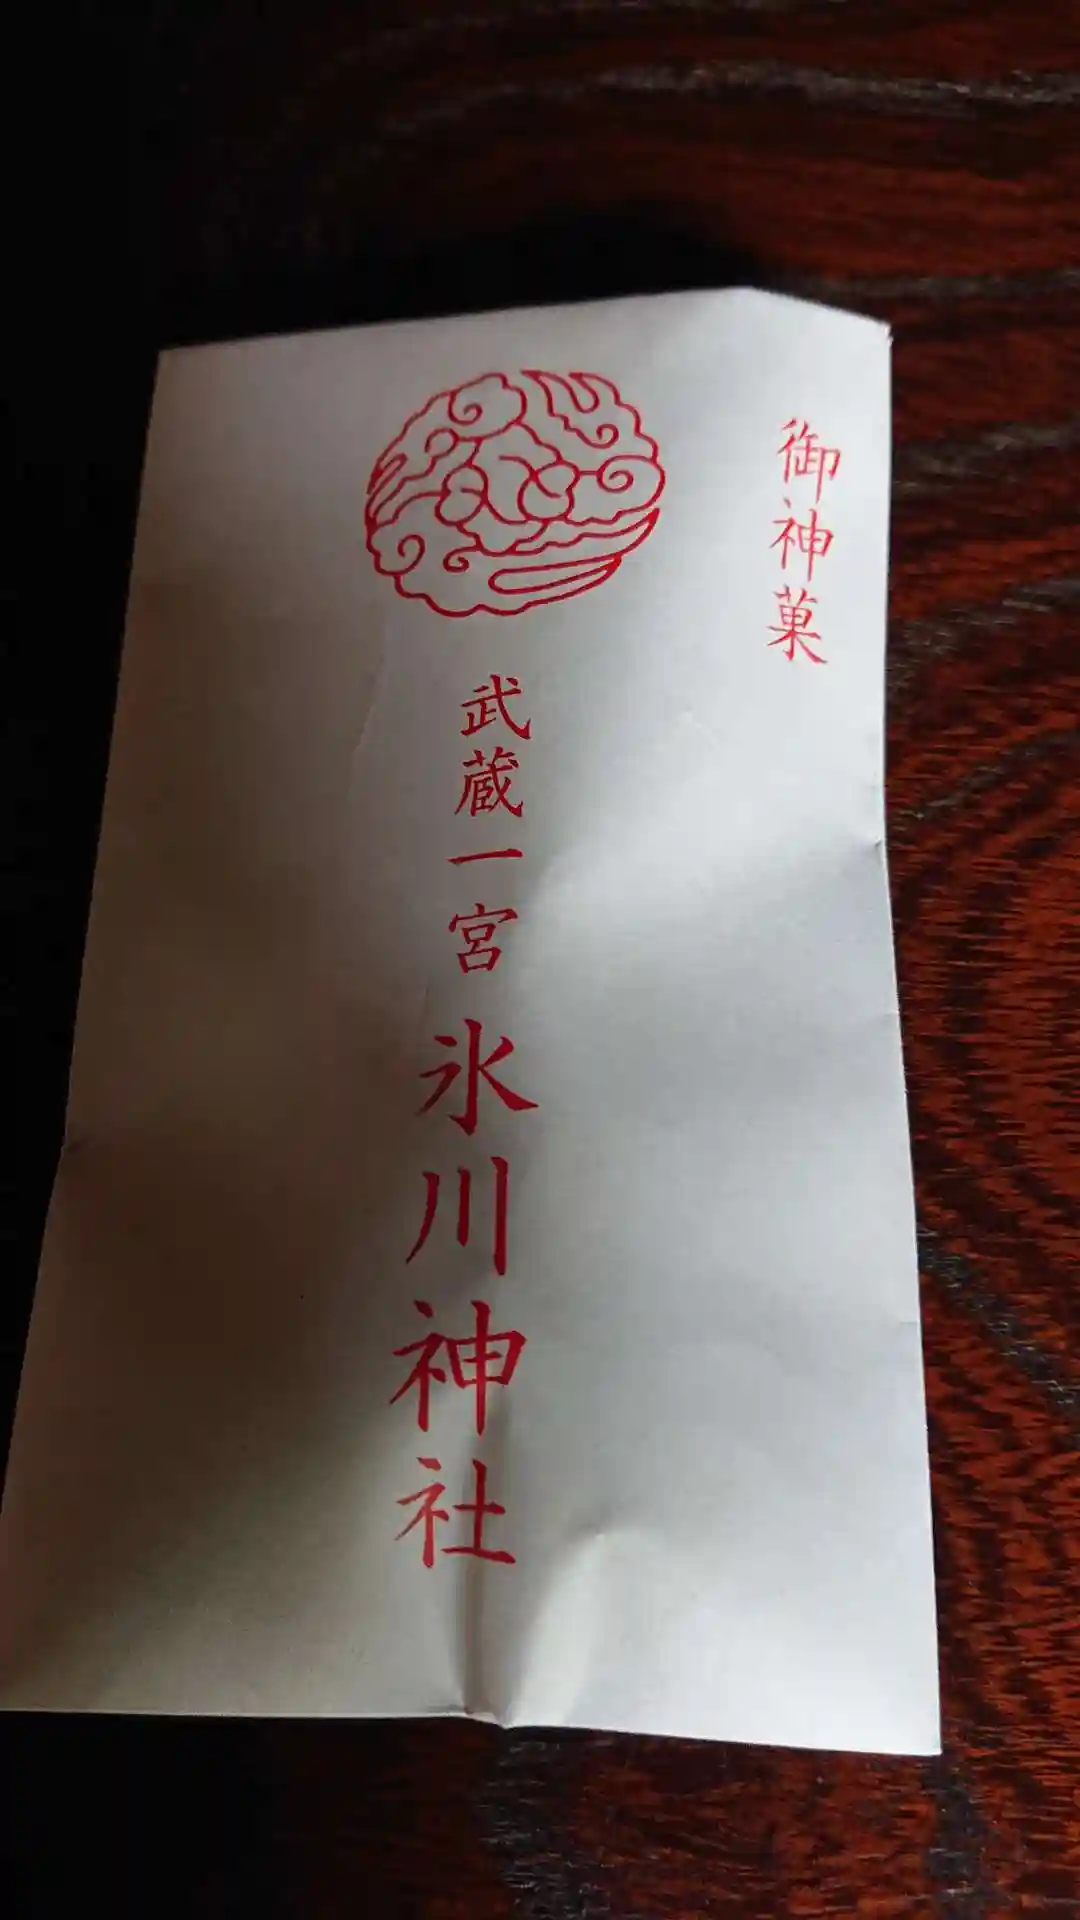 御神菓
武蔵一宮 氷川神社